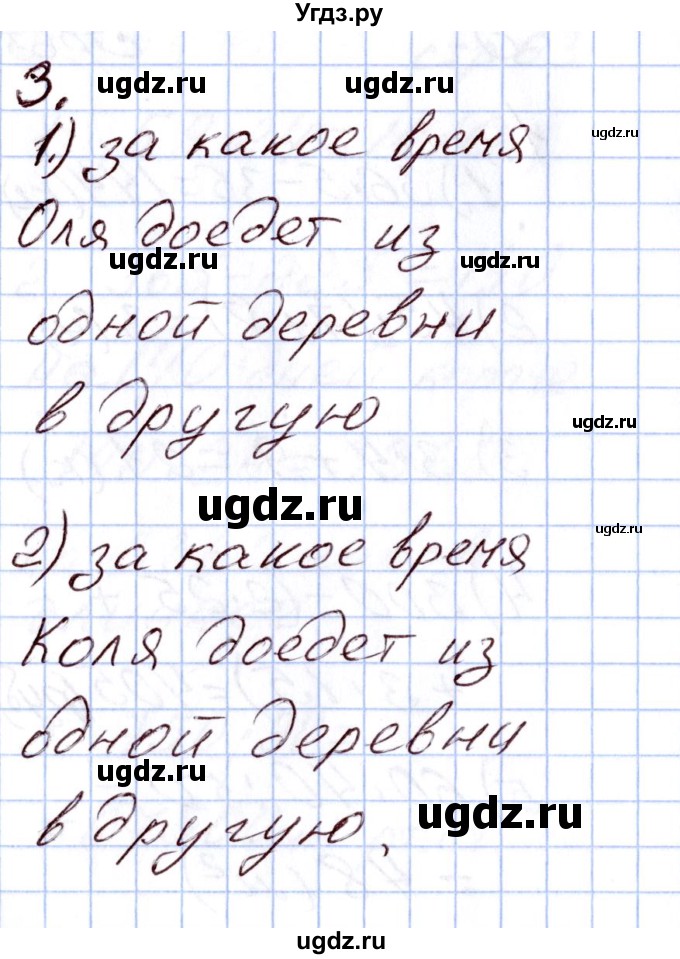 Угдз.ру
3.
ugdz.ru ugdz.ru
1.) за какое время
ugdz.ru
Оля доедет из
ugdz.ru ugdz.ru
одной деревни
в другую
ugdz.ru
ugdz.ru
ugdz.ru
2) за какое время
Коля доедет из
одной деревни
ugdz.ru
ugdz.ru
в другую,
ugdz.ru